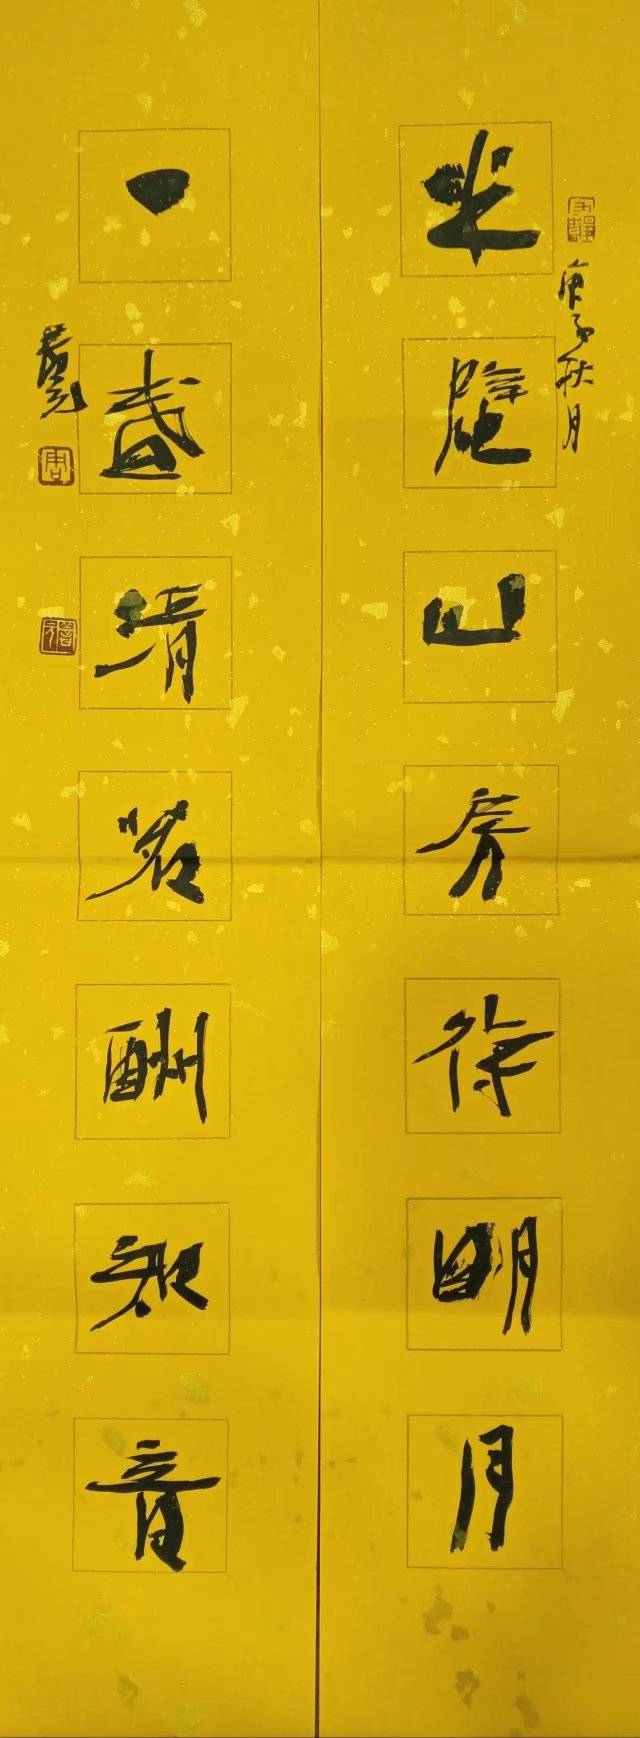 半壁山房待明月
庚子秋月
一盏清茗酬知音